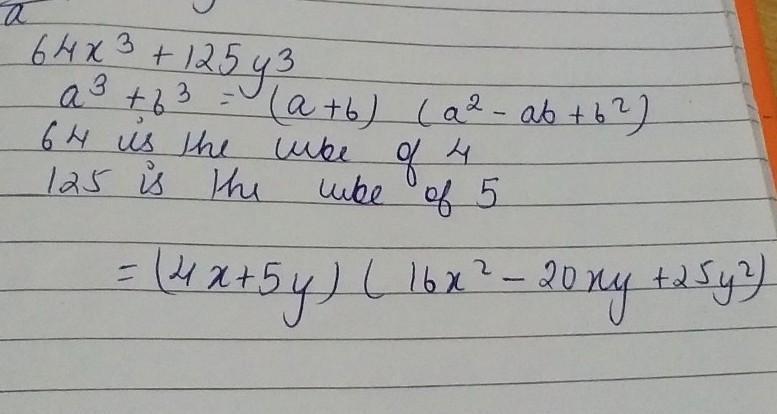 a
64x³ + 125y³
a³ + b³ = (a+b) (a² - ab + b²)
64 is the cube of 4
125 is the cube of 5
= (4x+5y) (16x² - 20xy + 25y²)